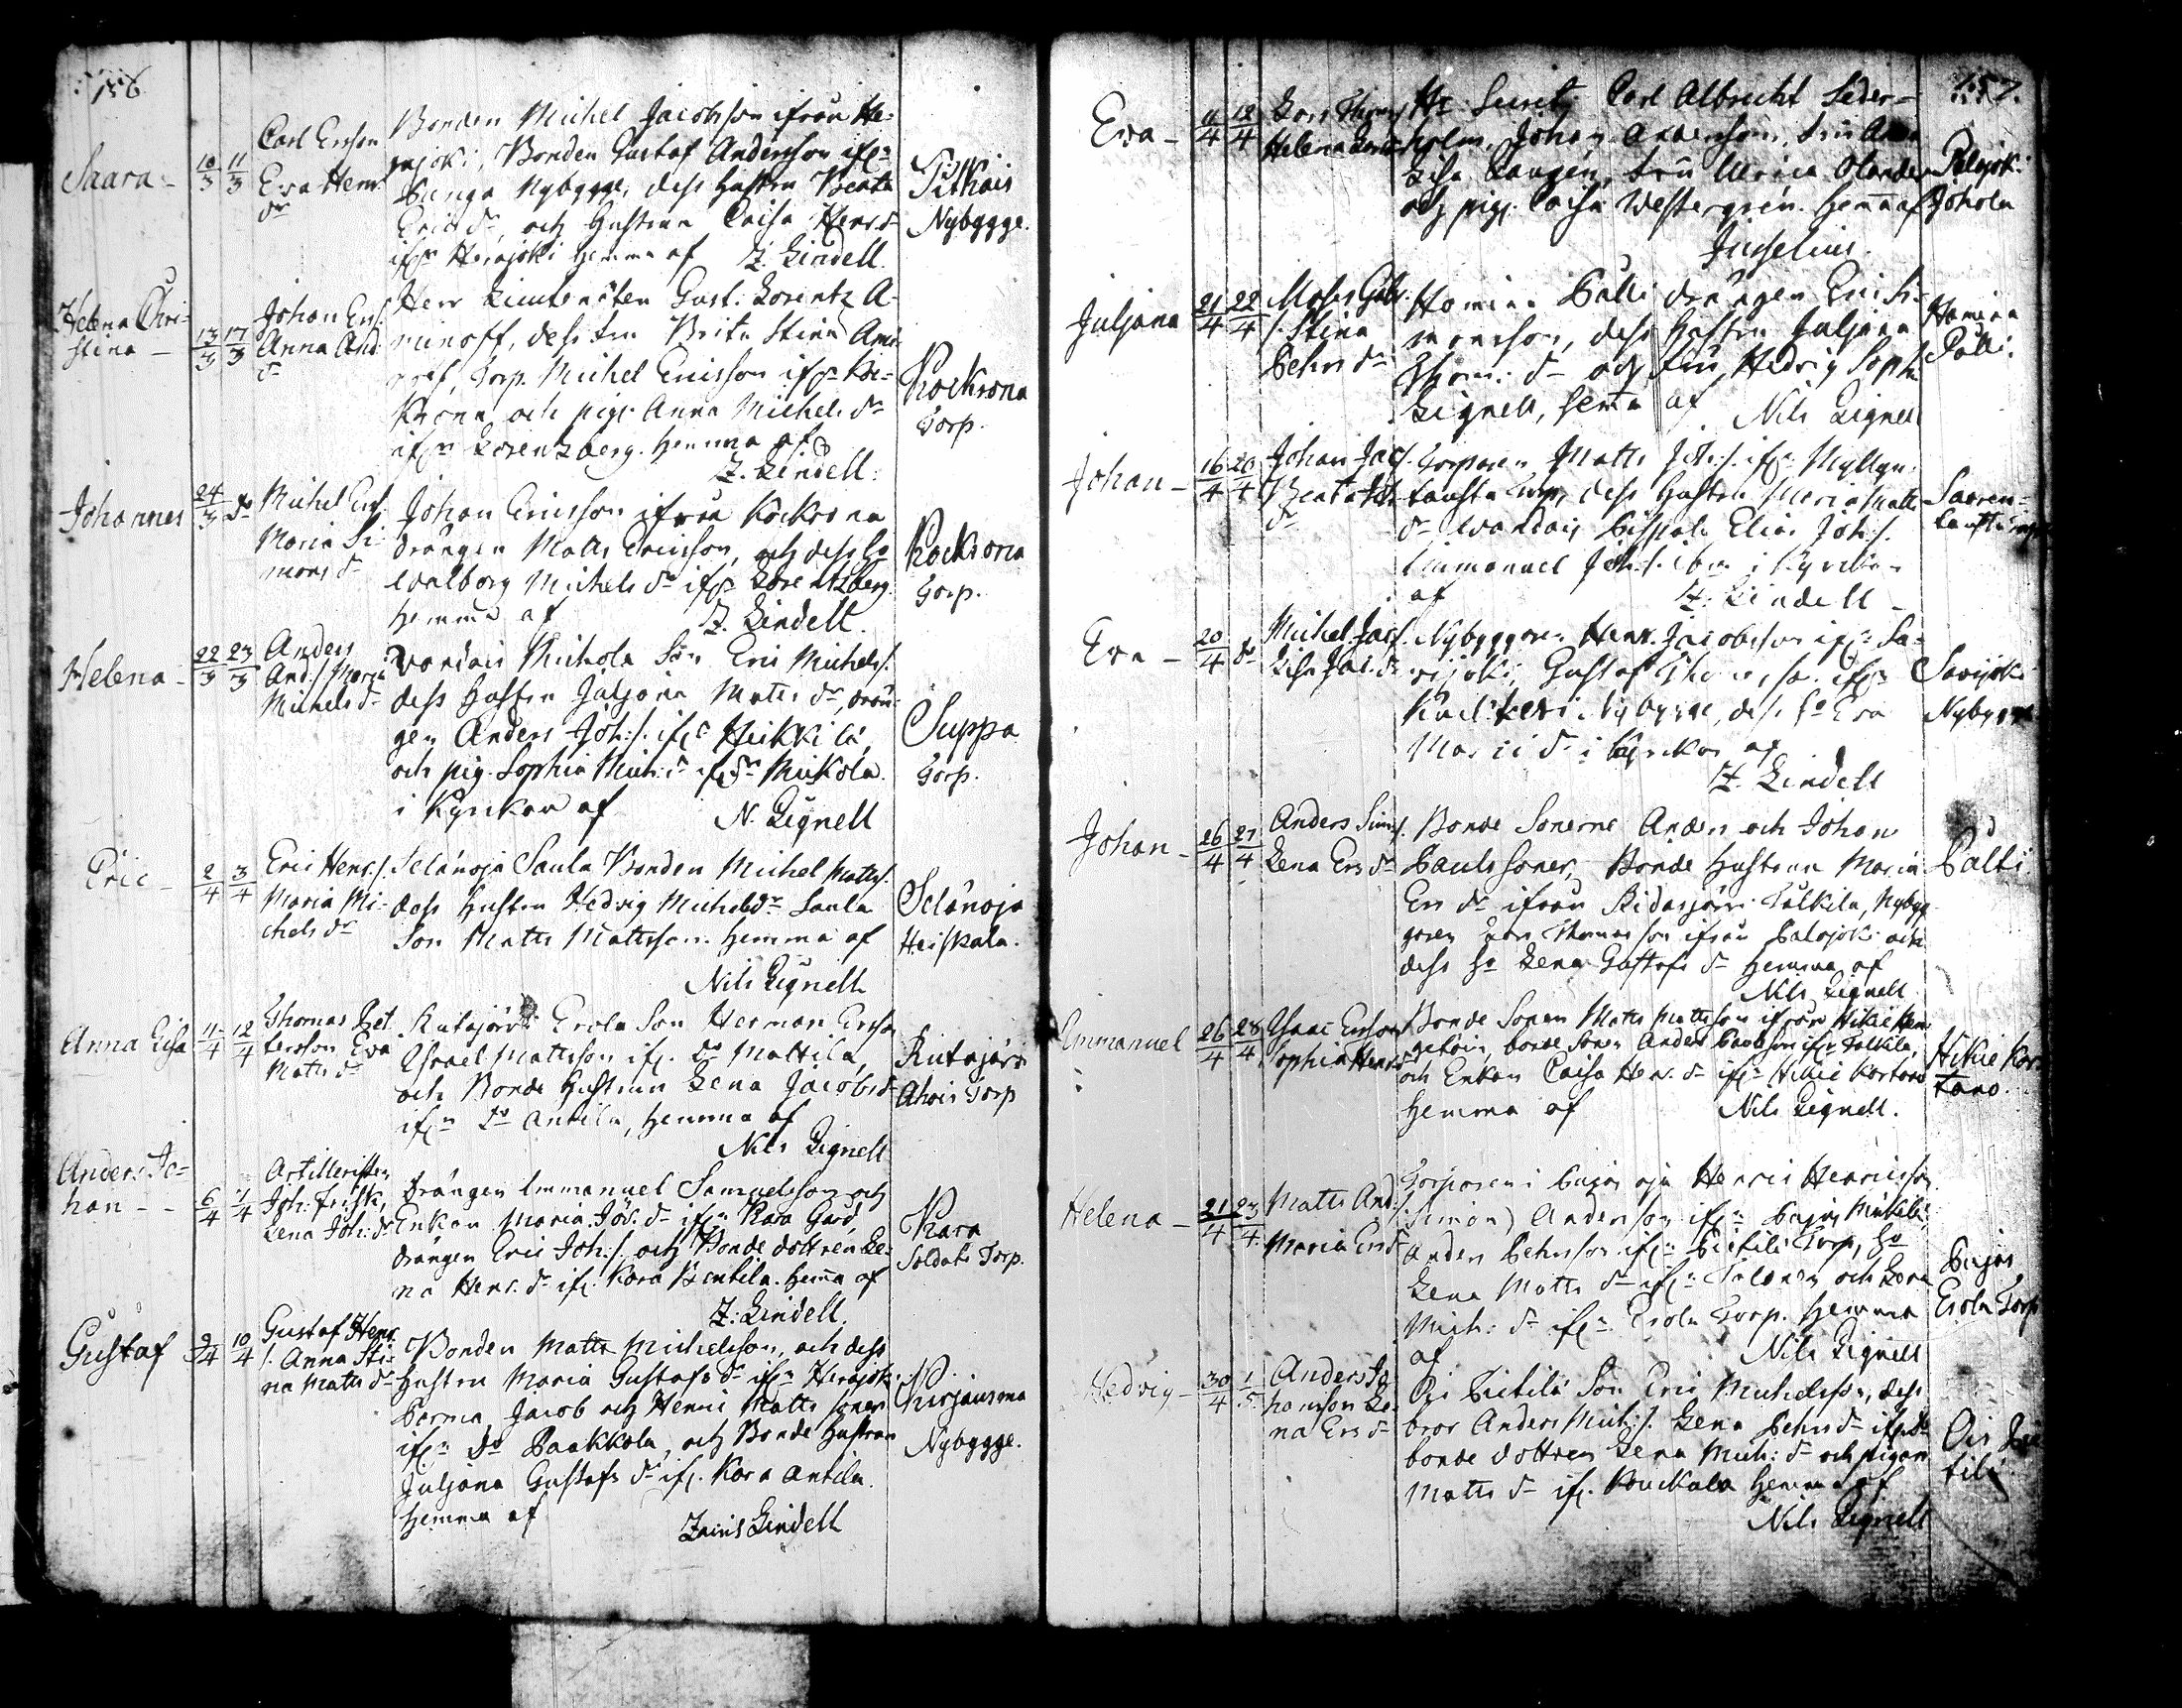 156
Saara - 10/3 11/3 Carl Ersson
Eva Henr.
dr
Bonden Michel Jacobsson ifrån He-
rajoki, Bonden Gustaf Andersson ifrn
Nybygge, dess Hustru Beata
Erics dr, och Hustrun Caisa Henr. dr
ifrn Herajoki hemma af Z. Lindell.
Nybygge.
Helena Chri-
stina - 13/3 17/3
Johan Er/.
Anna And.
dr
Herr Lieutenåten Gust. Lorentz A-
minoff, dess fru Brita Stina Ami-
noff, Torp. Michel Ericsson ifrn Kåc-
krona och pig. Anna Michels dr
ifrn Lorentzberg. hemma af
Z. Lindell.
Kockrona
Torp.
Johannes 24/3 do Michel Er/.
Maria Si-
mons dr
Johan Ericsson ifrån Kockrona
drängen Matts Ericsson, och dess ho
Walborg Michels dr ifrn Lorentzberg.
hemma af Z. Lindell.
Kockrona
Torp.
Helena - 22/3 23/3 Anders
And./. Maria
Michels dr
Wardais Mickola Son Eric Michels/.
dess Hustru Juljana Matts dr, drän-
gen Anders Joh:/. ifrn Heikkilä,
och pig. Sophia Mich: dr ifrn Mickola.
i Kyrckan af N. Lignell
Suppa
Torp.
Eric - 2/4 3/4 Eric Henr./.
Maria Mi-
chels dr
Selänoja Saula Bonden Michel Matts/.
dess Hustru Hedvig Michels dr Saula
Son Matts Mattsson. hemma af
Nils Lignell
Selänoja
Heiskala.
Anna Lisa 11/4 12/4 Thomas Pet-
tersson Eva
Matts dr
Rutajärvi Erola Son Herman Ersson
Israel Mattsson ifrn do Mattila,
och Bonde Hustrun Lena Jacobs dr
ifrn do Antila, hemma af
Nils Lignell
Rutajärvi
Ahois Torp
Anders Jo-
han - - 6/4 7/4 Artilleristen
Joh: Frisk,
Lena Joh: dr
Drängen Emmanuel Samuelsson och
Enkan Maria Joh. dr ifrn Kara Gård,
drängen Eric Joh:/. och Bonde dottren Le-
na Henr. dr ifrn Kara Pentila. hemma af
Z: Lindell.
Kara
Soldats Torp.
Gustaf 9/4 10/4 Gustaf Henr.
/. Anna Sti-
na Matts dr
Bonden Matts Michelsson, och dess
Hustru Maria Gustafs dr ifrn Herajoki
Perma, Jacob och Henric Matts söner
ifrn do Paakkola, och Bonde Hustrun
Juljana Gustafs dr ifrn Kara Antila.
hemma af
Zacris Lindell
Nybygge.
157.
Eva - 11/4 12/4 Lars Thom/.
Helena
Hr Secret. Carl Albrecht Seder-
holm, Johan Andersson, fru Anna
Lisa Langén, fru Ulrica Olander
och pig. Caisa Westergrén. hemma af
Juselius.
Palojoki
Johola
Juljana 21/4 22/4 Moses Gabr.
/. Stina
Pehrs dr
Hamina Palli drängen Eric Si-
monsson, dess Hustru Juljana
Thom: dr och fru Hedvig Soph.
Lignell, hema af Nils Lignell
Hamina
Palli.
Johan - 16/4 20/4 Johan Jac/.
Beata
dr
Torparen Matts Joh:/. ifrn Myllyn-
Torp, dess Hustru Maria Matts
dr Wardais Pispala Elias Joh:/.
Emmanuel Joh:/. i Kyrckan
af Z. Lindell
Saaren-
Torp
Eva - 20/4 do Michel Jac/.
Lisa Jac. dr
Nybyggaren Henr. Jacobsson ifrn Sa-
vijoki, Gustaf Thomsson ifrn
Nybygge, dess ho Eva
dr i Kyrckan af
Z. Lindell
Savijoki
Nybygge
Johan - 26/4 27/4 Anders Sim/.
Lena Ers dr
Bonde Sönerne Anders och Johan
Pauls söner, Bonde Hustrun Maria
Ers dr ifrån Ridasjärvi Tälkilä, Nybyg-
garen Lars Thomasson ifrån Palojoki och
dess ho Lena Gustafs dr hemma af
Nils Lignell
Palti
Emmanuel 26/4 28/4 Isaac Ersson
Sophia Henr. dr
Bonde Sonen Matts Mattsson ifrån Hikiä
bonde Sonen Anders Paulsson ifrn Tälkilä,
och Enkan Caisa Henr. dr ifrn Hikiä Kortano
hemma af Nils Lignell.
Hikiä Kor-
tano.
Helena - 21/4 23/4 Matts And:/.
Maria Ers dr
Torparen i Henric Henricsson
(Simon) Andersson ifrn Mickila,
Anders Pehrsson ifrn Pietilä Torp, ho
Lena Matts dr ifrn och Lena
Mich: dr ifrn Erola Torp. hemma
af Nils Lignell
Erola Torp
Hedvig - 30/4 1/5 Anders Jo-
hansson Le-
na Ers dr
Ois Pietilä Son Eric Michelsson, dess
bror Anders Mich:/. Lena Pehrs dr ifrn do
bonde dottren Lena Mich: dr och pigan
Matts dr ifrn Kouckala hemma af
Nils Lignell
Ois Pie-
tilä